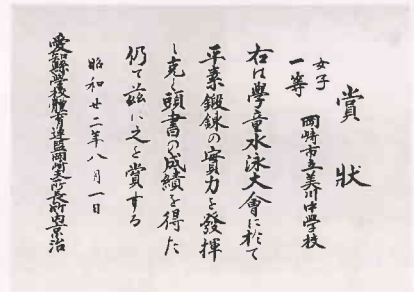 賞狀
女子
一等 岡崎市立美川中學校
右は學童水泳大會に於て
平素鍛錬の實力を發揮
し克く頭書の成績を得た
仍て茲に之を賞する
昭和廿二年八月一日
愛知縣學校體育連盟岡崎支所長所内京治